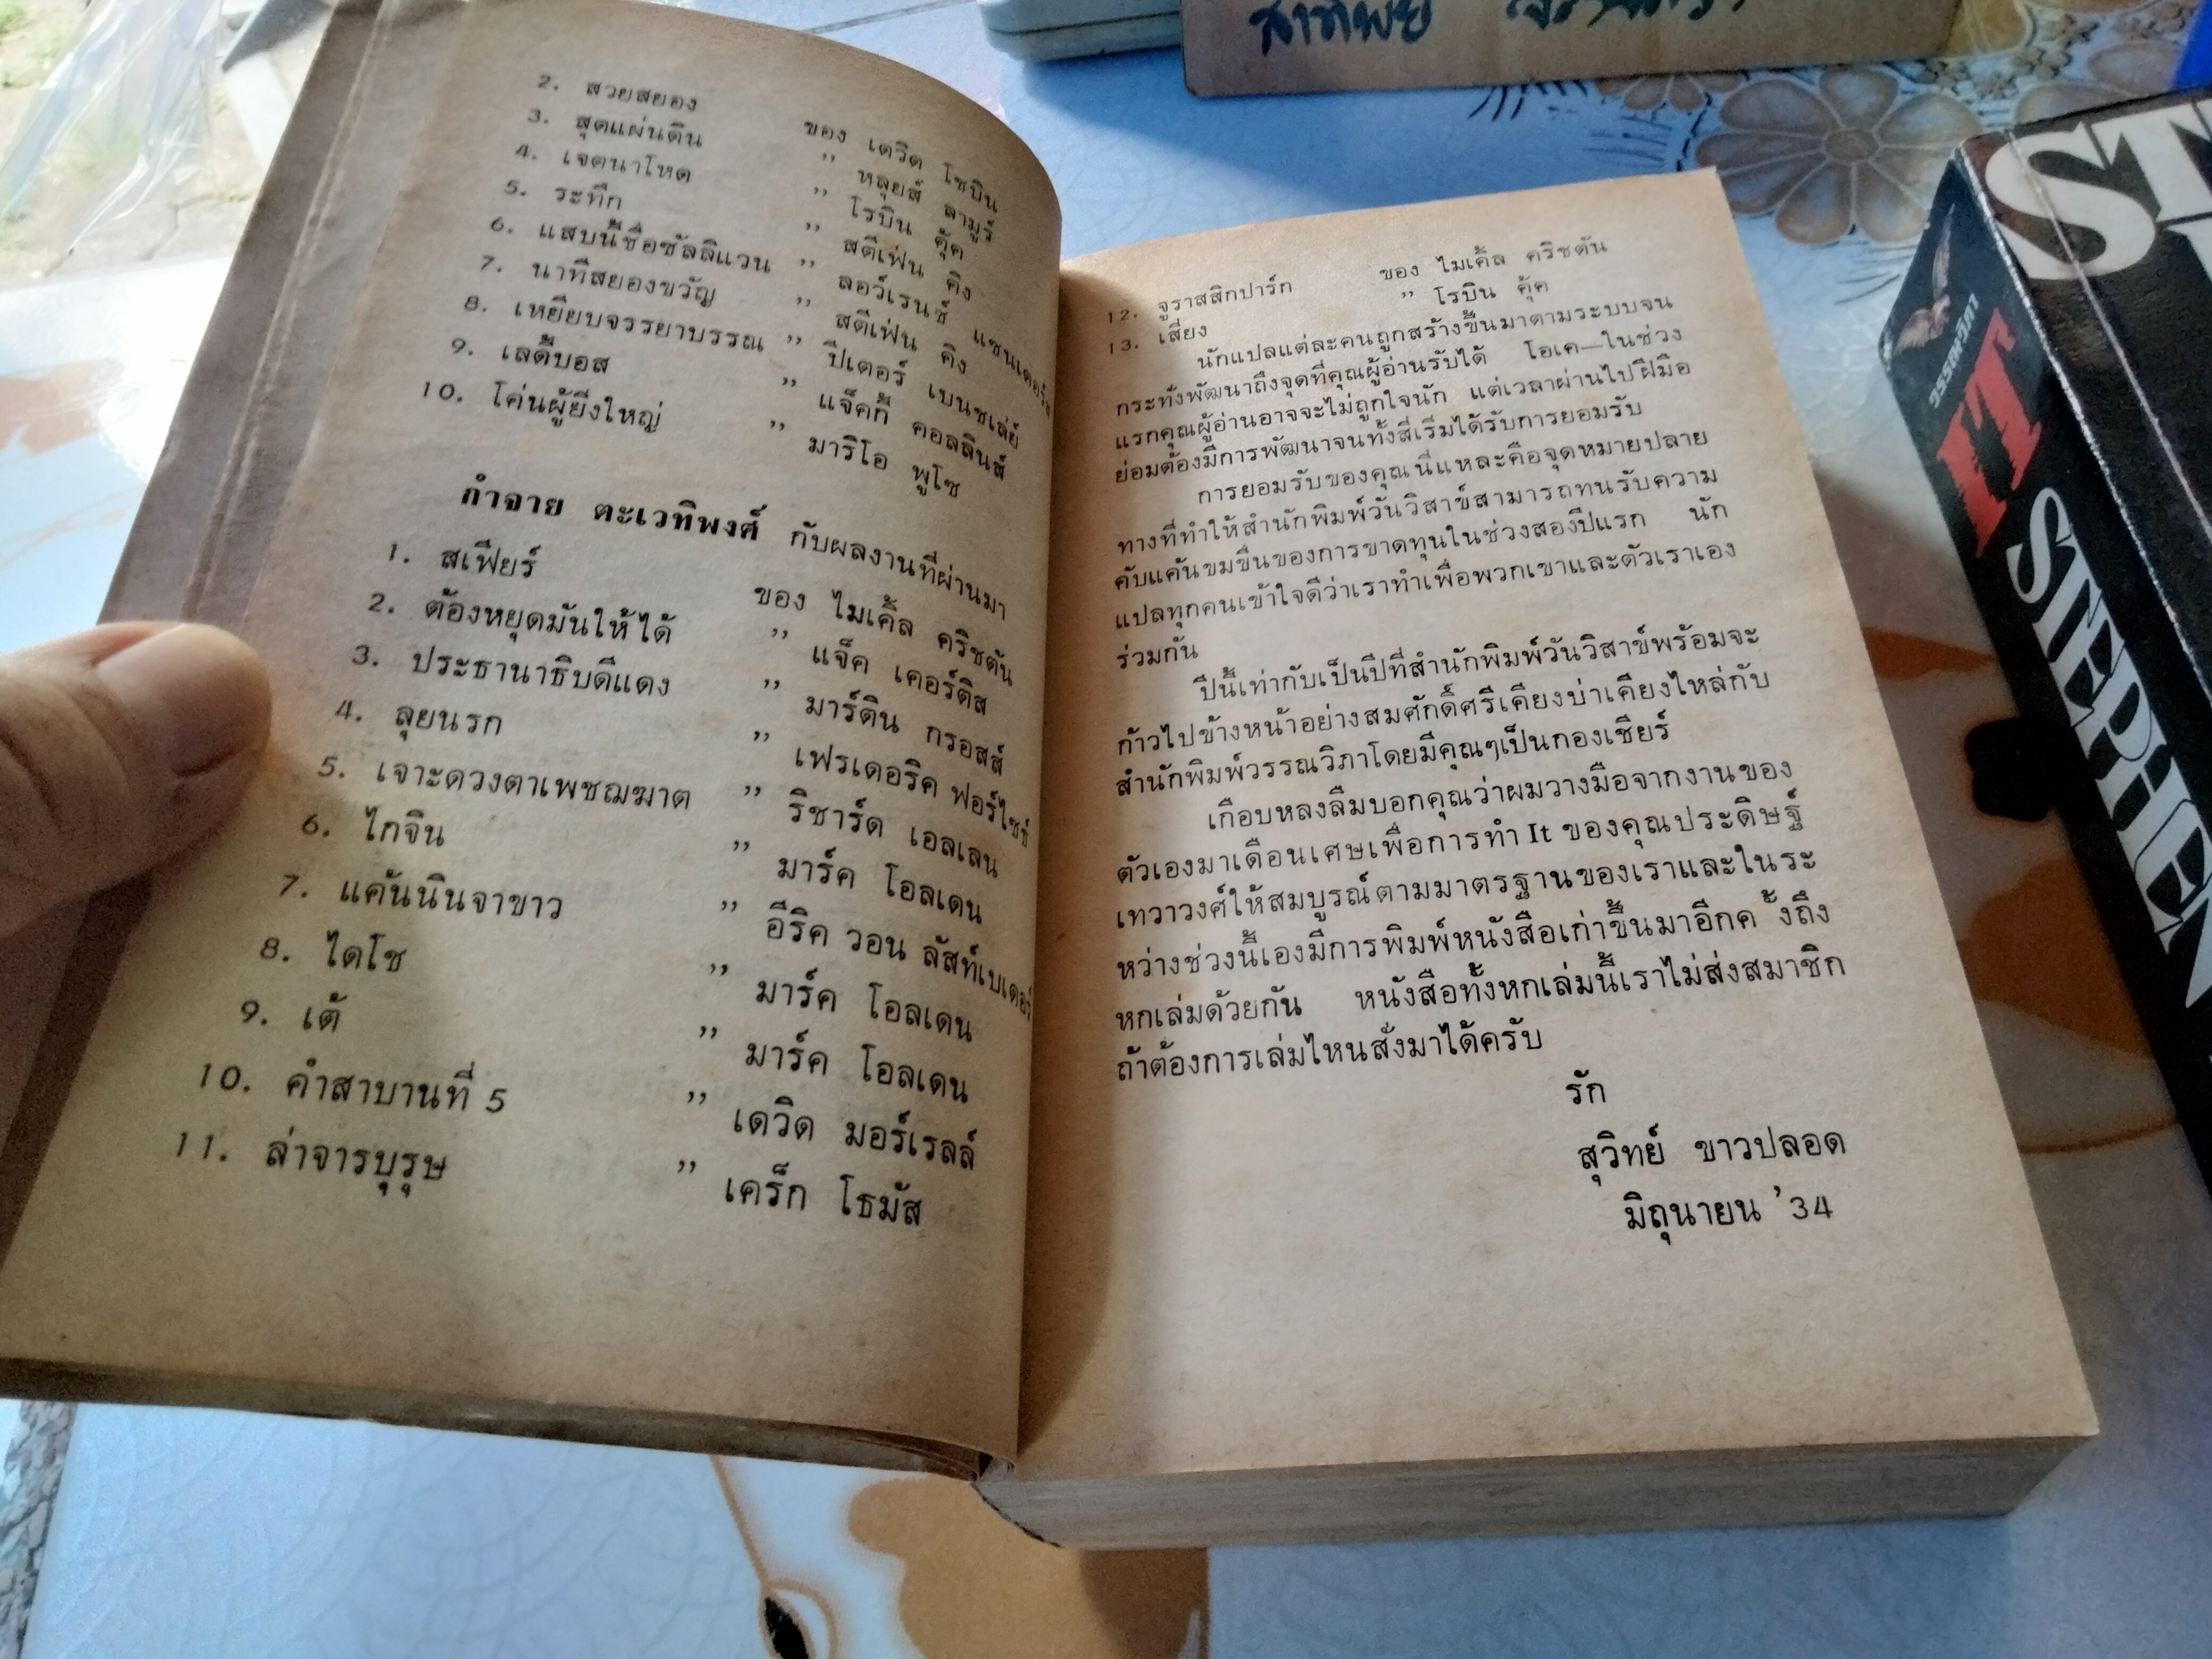 2. สวยสยอง ของ เดวิด โซบิน
3. สุดแผ่นดิน ” หลุยส์ ลามูร์
4. เจตนาโหด ” โรบิน คุ้ค
5. ระทึก ” สตีเฟ่น คิง
6. แสบนี้ชื่อซัลลิแวน ” ลอว์เรนซ์ แซนเดอร์ส
7. นาทีสยองขวัญ ” สตีเฟ่น คิง
8. เหยียบจรรยาบรรณ ” ปีเตอร์ เบนชเล่ย์
9. เลดี้บอส ” แจ็คกี้ คอลลินส์
10. โค่นผู้ยิ่งใหญ่ ” มาริโอ พูโซ
กำจาย ตะเวทิพงศ์ กับผลงานที่ผ่านมา
1. สเฟียร์ ของ ไมเคิ้ล คริชตัน
2. ต้องหยุดมันให้ได้ ” แจ็ค เคอร์ติส
3. ประธานาธิบดีแดง ” มาร์ติน กรอสส์
4. ลุยนรก ” เฟรเดอริค ฟอร์ไซธ์
5. เจาะดวงตาเพชฌฆาต ” ริชาร์ด เอลเลน
6. ไกจิน ” มาร์ค โอลเดน
7. แค้นนินจาขาว ” อีริค วอน ลัสท์เบเดอร์
8. ไดโช ” มาร์ค โอลเดน
9. เต้ ” มาร์ค โอลเดน
10. คำสาบานที่ 5 ” เดวิด มอร์เรลล์
11. ล่าจารบุรุษ ” เคร็ก โธมัส
12. จูราสสิกปาร์ก ของ ไมเคิ้ล คริชตัน
13. เสี่ยง ” โรบิน คุ้ค
นักแปลแต่ละคนถูกสร้างขึ้นมาตามระบบจน
กระทั่งพัฒนาถึงจุดที่คุณผู้อ่านรับได้ โอเค—ในช่วง
แรกคุณผู้อ่านอาจจะไม่ถูกใจนัก แต่เวลาผ่านไปฝีมือ
ย่อมต้องมีการพัฒนาจนทั้งสี่เริ่มได้รับการยอมรับ
การยอมรับของคุณนี่แหละคือจุดหมายปลาย
ทางที่ทำให้สำนักพิมพ์วันวิสาข์สามารถทนรับความ
คับแค้นขมขื่นของการขาดทุนในช่วงสองปีแรก นัก
แปลทุกคนเข้าใจดีว่าเราทำเพื่อพวกเขาและตัวเราเอง
ร่วมกัน
ปีนี้เท่ากับเป็นปีที่สำนักพิมพ์วันวิสาข์พร้อมจะ
ก้าวไปข้างหน้าอย่างสมศักดิ์ศรีเคียงบ่าเคียงไหล่กับ
สำนักพิมพ์วรรณวิภาโดยมีคุณๆเป็นกองเชียร์
เกือบหลงลืมบอกคุณว่าผมวางมือจากงานของ
ตัวเองมาเดือนเศษเพื่อการทำ It ของคุณประดิษฐ์
เทวาวงศ์ให้สมบูรณ์ตามมาตรฐานของเราและในระ
หว่างช่วงนี้เองมีการพิมพ์หนังสือเก่าขึ้นมาอีกค ั้งถึง
หกเล่มด้วยกัน หนังสือทั้งหกเล่มนี้เราไม่ส่งสมาชิก
ถ้าต้องการเล่มไหนสั่งมาได้ครับ
รัก
สุวิทย์ ขาวปลอด
มิถุนายน ’34
วรรณวิภา
IT
STEPHEN